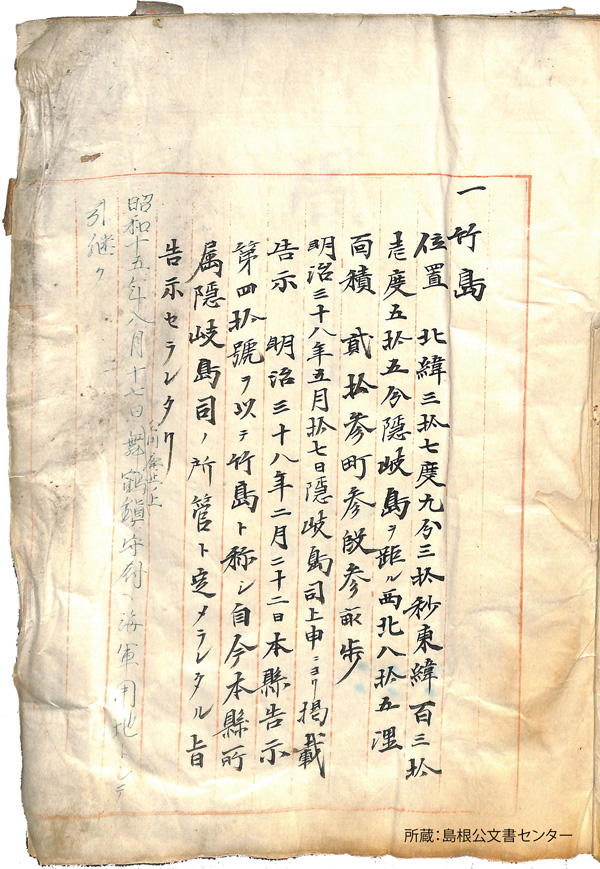 一竹島
位置 北緯三拾七度九分三拾秒東緯百三拾
壱度五拾五分隠岐島ヲ距ル西北八拾五浬
面積 貳拾参町参段参畝歩
明治三十八年五月拾七日隠岐島司上申ニヨリ掲載
告示 明治三十八年二月二十二日本縣告示
第四拾號ヲ以テ竹島ト称シ自今本縣所
属隠岐島司ノ所管ト定メラレタル旨
告示セラレタリ
昭和十五年八月十七日公用廃止ノ上舞鶴鎮守府ヘ海軍用地トシテ
引継ク
所蔵：島根公文書センター